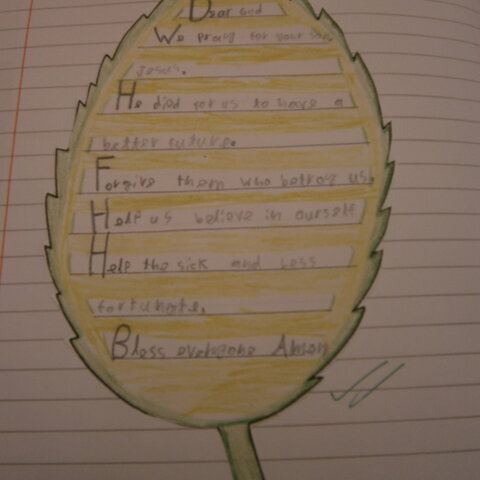 Dear God
We pray for your son
Jesus.
He died for us to have a
better future.
Forgive them who betray us,
Help us believe in ourself
Help the sick and less
fortunate,
Bless everyone Amen